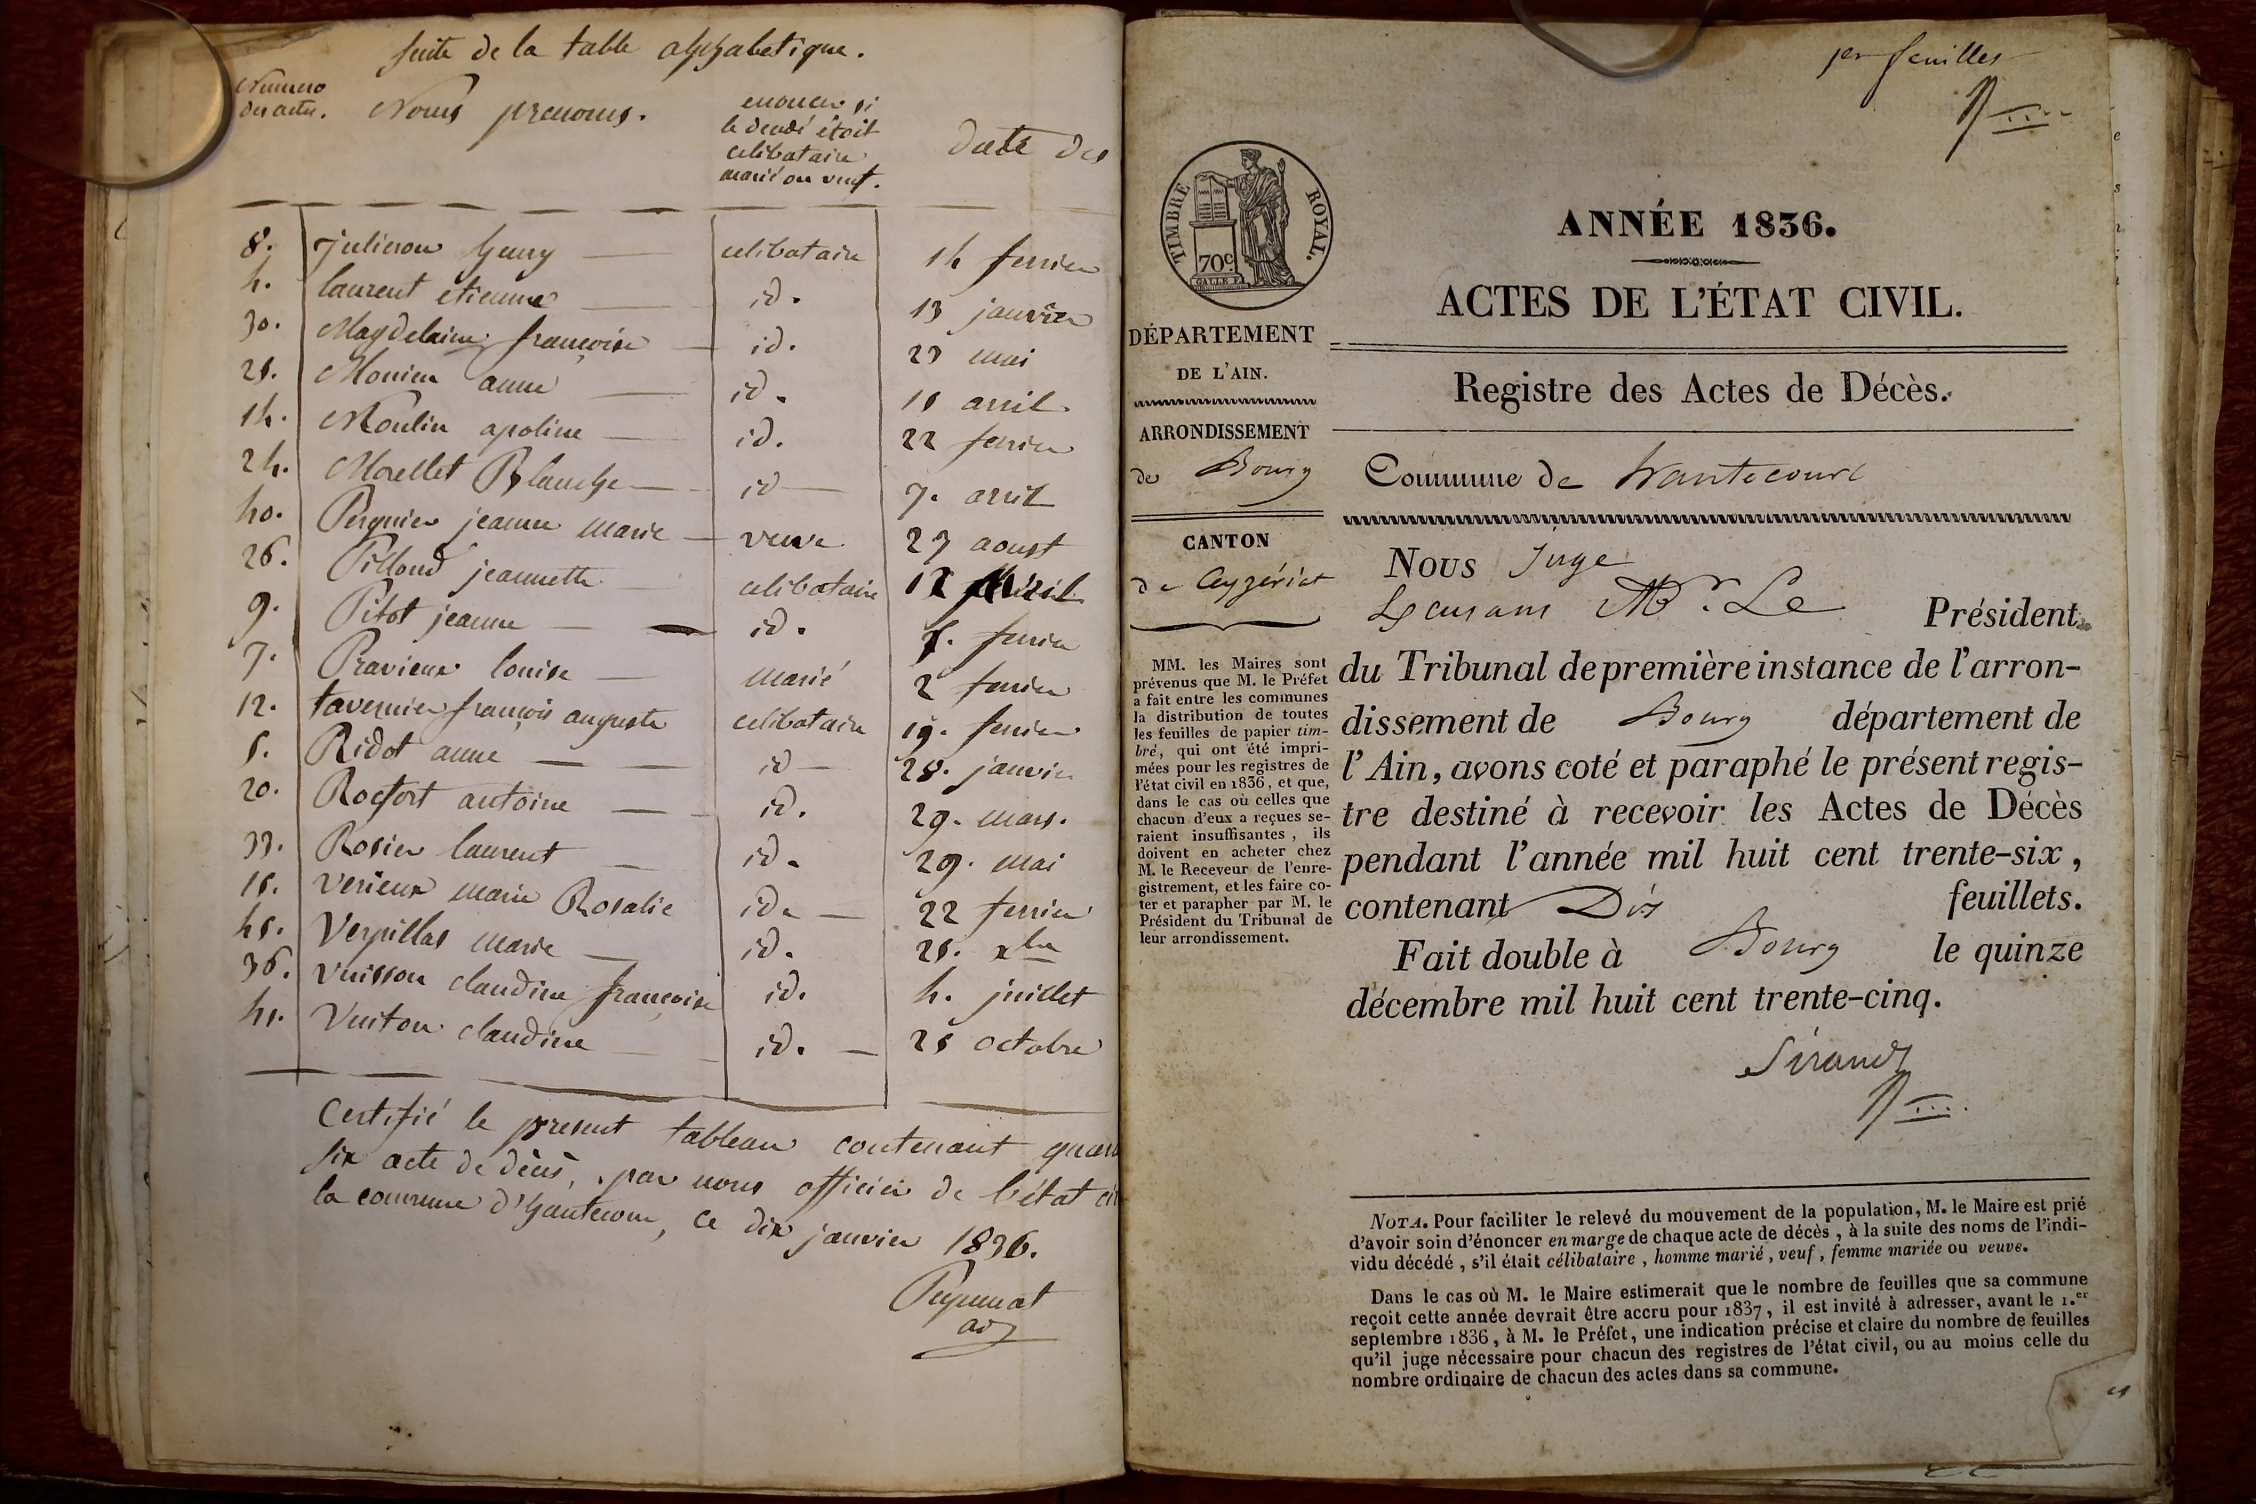 suite de la table alphabetique.
Numero des actes. Noms prenoms. enoncer si le décédé étoit celibataire marié ou veuf. Date des
8. julieron henry celibataire 14 fevrier
4. laurent etienne id. 13 janvier
30. Magdelaine françoise id. 23 mai
25. Monier anne id. 15 avril
14. Moulin apoline id. 22 fevrier
24. Morellet Blanche id 7. avril
40. Perquier jeanne marie veuve 27 aoust
26. Pilloud jeannette celibataire 17 avril
9. Pitot jeanne id. 5. fevrier
7. Pravieux louise marié 2 fevrier
12. tavernier françois auguste celibataire 19. fevrier
5. Ridot anne id 28. janvier
20. Rocfort antoine id. 29. mars.
33. Rosier laurent id. 29. mai
15. verieux marie Rosalie id. 22 fevrier
45. Verpillas marie id. 25. xbre
36. vuisson claudine françoise id. 4. juillet
41. Vuiton claudine id. 25 octobre
Certifié le present tableau contenant quara
six acte de décès, par nous officier de l'état ci
la commune d'hautecour, ce dix janvier 1836.
adj
per feuilles
TIMBRE ROYAL.
70c.
ANNÉE 1836.
ACTES DE L'ÉTAT CIVIL.
DÉPARTEMENT
DE L'AIN.
Registre des Actes de Décès.
ARRONDISSEMENT
de Bourg
Commune de hautecourt
CANTON
de Ceyzériat
MM. les Maires sont
prévenus que M. le Préfet
a fait entre les communes
la distribution de toutes
les feuilles de papier tim-
bré, qui ont été impri-
mées pour les registres de
l'état civil en 1836, et que,
dans le cas où celles que
chacun d'eux a reçues se-
raient insuffisantes, ils
doivent en acheter chez
M. le Receveur de l'enre-
gistrement, et les faire co-
ter et parapher par M. le
Président du Tribunal de
leur arrondissement.
Nous juge
Mr. Le Président
du Tribunal de première instance de l'arron-
dissement de Bourg département de
l'Ain, avons coté et paraphé le présent regis-
tre destiné à recevoir les Actes de Décès
pendant l'année mil huit cent trente-six,
contenant Dix feuillets.
Fait double à Bourg le quinze
décembre mil huit cent trente-cinq.
Sirand
NOTA. Pour faciliter le relevé du mouvement de la population, M. le Maire est prié
d'avoir soin d'énoncer en marge de chaque acte de décès, à la suite des noms de l'indi-
vidu décédé, s'il était célibataire, homme marié, veuf, femme mariée ou veuve.
Dans le cas où M. le Maire estimerait que le nombre de feuilles que sa commune
reçoit cette année devrait être accru pour 1837, il est invité à adresser, avant le 1.er
septembre 1836, à M. le Préfet, une indication précise et claire du nombre de feuilles
qu'il juge nécessaire pour chacun des registres de l'état civil, ou au moins celle du
nombre ordinaire de chacun des actes dans sa commune.